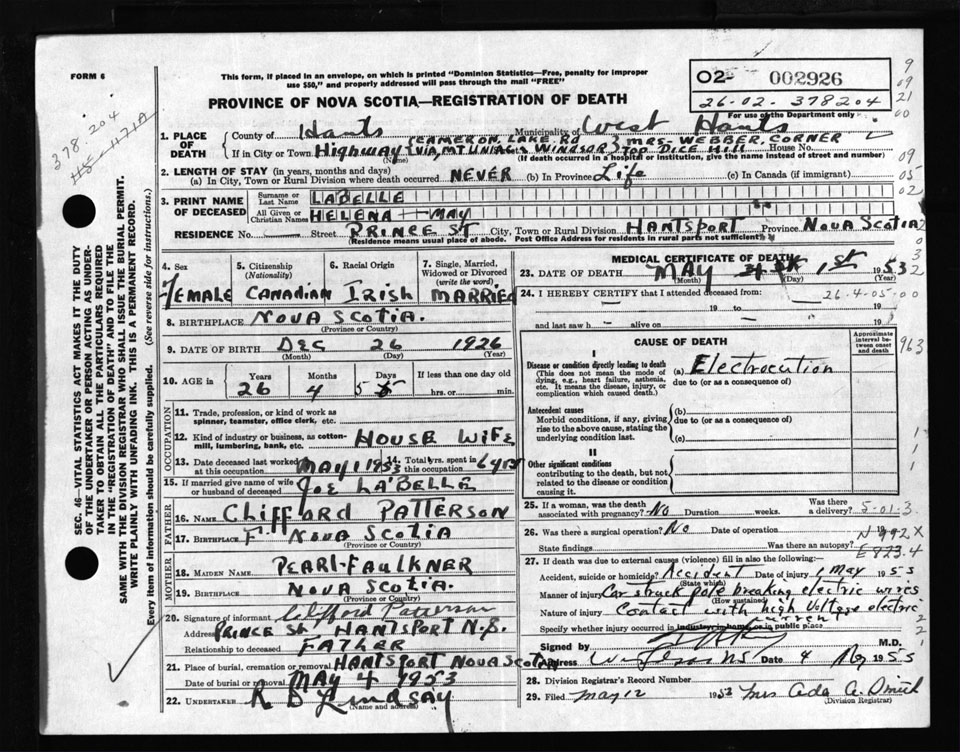 FORM 6
This form, if placed in an envelope, on which is printed "Dominion Statistics—Free, penalty for improper
use $50," and properly addressed will pass through the mail "FREE"
PROVINCE OF NOVA SCOTIA—REGISTRATION OF DEATH
O2- 002926
26-02-378204
For use of the Department only
378 204
1. PLACE OF DEATH
County of Hants Municipality of West Hants
If in City or Town Highway (CAMERON LAKE RD VIA, MT UNIACK WINDSOR) MRS WEBBER, CORNER TOP DICE HILL House No.
(Name) (If death occurred in a hospital or institution, give the name instead of street and number)
2. LENGTH OF STAY (in years, months and days)
(a) In City, Town or Rural Division where death occurred NEVER (b) In Province Life (c) In Canada (if immigrant)
3. PRINT NAME OF DECEASED
Surname or Last Name LABELLE
All Given or Christian Names HELENA MAY
RESIDENCE No. Street PRINCE ST City, Town or Rural Division HANTSPORT Province NOVA SCOTIA
(Residence means usual place of abode. Post Office Address for residents in rural parts not sufficient)
4. Sex FEMALE
5. Citizenship (Nationality) CANADIAN
6. Racial Origin IRISH
7. Single, Married, Widowed or Divorced (write the word) MARRIED
8. BIRTHPLACE NOVA SCOTIA.
(Province or Country)
9. DATE OF BIRTH DEC 26 1926
(Month) (Day) (Year)
10. AGE in Years Months Days If less than one day old
26 4 5 hrs. or min.
OCCUPATION
11. Trade, profession, or kind of work as
spinner, teamster, office clerk, etc.
12. Kind of industry or business, as cotton-
mill, lumbering, bank, etc. HOUSE WIFE
13. Date deceased last worked at this occupation MAY 1 1953 14. Total yrs. spent in this occupation 6 yrs
15. If married give name of wife
or husband of deceased JOE LABELLE
FATHER
16. NAME CLIFFORD PATTERSON
17. BIRTHPLACE NOVA SCOTIA
(Province or Country)
MOTHER
18. MAIDEN NAME PEARL-FAULKNER
19. BIRTHPLACE NOVA SCOTIA.
(Province or Country)
20. Signature of informant Clifford Patterson
Address PRINCE St HANTSPORT N.S.
Relationship to deceased FATHER
21. Place of burial, cremation or removal HANTSPORT NOVA SCOTIA
Date of burial or removal MAY 4 1953
22. UNDERTAKER R B Lindsay
(Name and address)
MEDICAL CERTIFICATE OF DEATH
23. DATE OF DEATH MAY 1st 1953
(Month) (Day) (Year)
24. I HEREBY CERTIFY that I attended deceased from: 26-4-05-00
19 to 19
and last saw h alive on 19
CAUSE OF DEATH
Approximate interval between onset and death
I
Disease or condition directly leading to death
(This does not mean the mode of dying, e.g., heart failure, asthenia, etc. It means the disease, injury, or complication which caused death.)
(a) Electrocution
due to (or as a consequence of)
Antecedent causes
Morbid conditions, if any, giving rise to the above cause, stating the underlying condition last.
(b)
due to (or as a consequence of)
(c)
II
Other significant conditions
contributing to the death, but not related to the disease or condition causing it.
25. If a woman, was the death associated with pregnancy? No Duration weeks. Was there a delivery? 5-01-3
26. Was there a surgical operation? No Date of operation 19
State findings Was there an autopsy?
N 992X
E 923.4
27. If death was due to external causes (violence) fill in also the following:
Accident, suicide or homicide? Accident Date of injury 1 May 1953
(State which)
Manner of injury Car struck pole breaking electric wires
(How sustained)
Nature of injury Contact with high voltage electric current
Specify whether injury occurred in industry, in home, or in public place
Signed by M.D.
Address Windsor NS Date 4 May 1953
28. Division Registrar's Record Number
29. Filed May 12 1953 Mrs Ada A. Smith
(Division Registrar)
SEC. 46—VITAL STATISTICS ACT MAKES IT THE DUTY
OF THE UNDERTAKER OR PERSON ACTING AS UNDER-
TAKER TO OBTAIN ALL THE PARTICULARS REQUIRED
IN THE "REGISTRATION OF DEATH" AND TO FILE THE
SAME WITH THE DIVISION REGISTRAR WHO SHALL ISSUE THE BURIAL PERMIT.
WRITE PLAINLY WITH UNFADING INK. THIS IS A PERMANENT RECORD.
Every item of information should be carefully supplied. (See reverse side for instructions.)
9
09
21
00
09
05
02
963